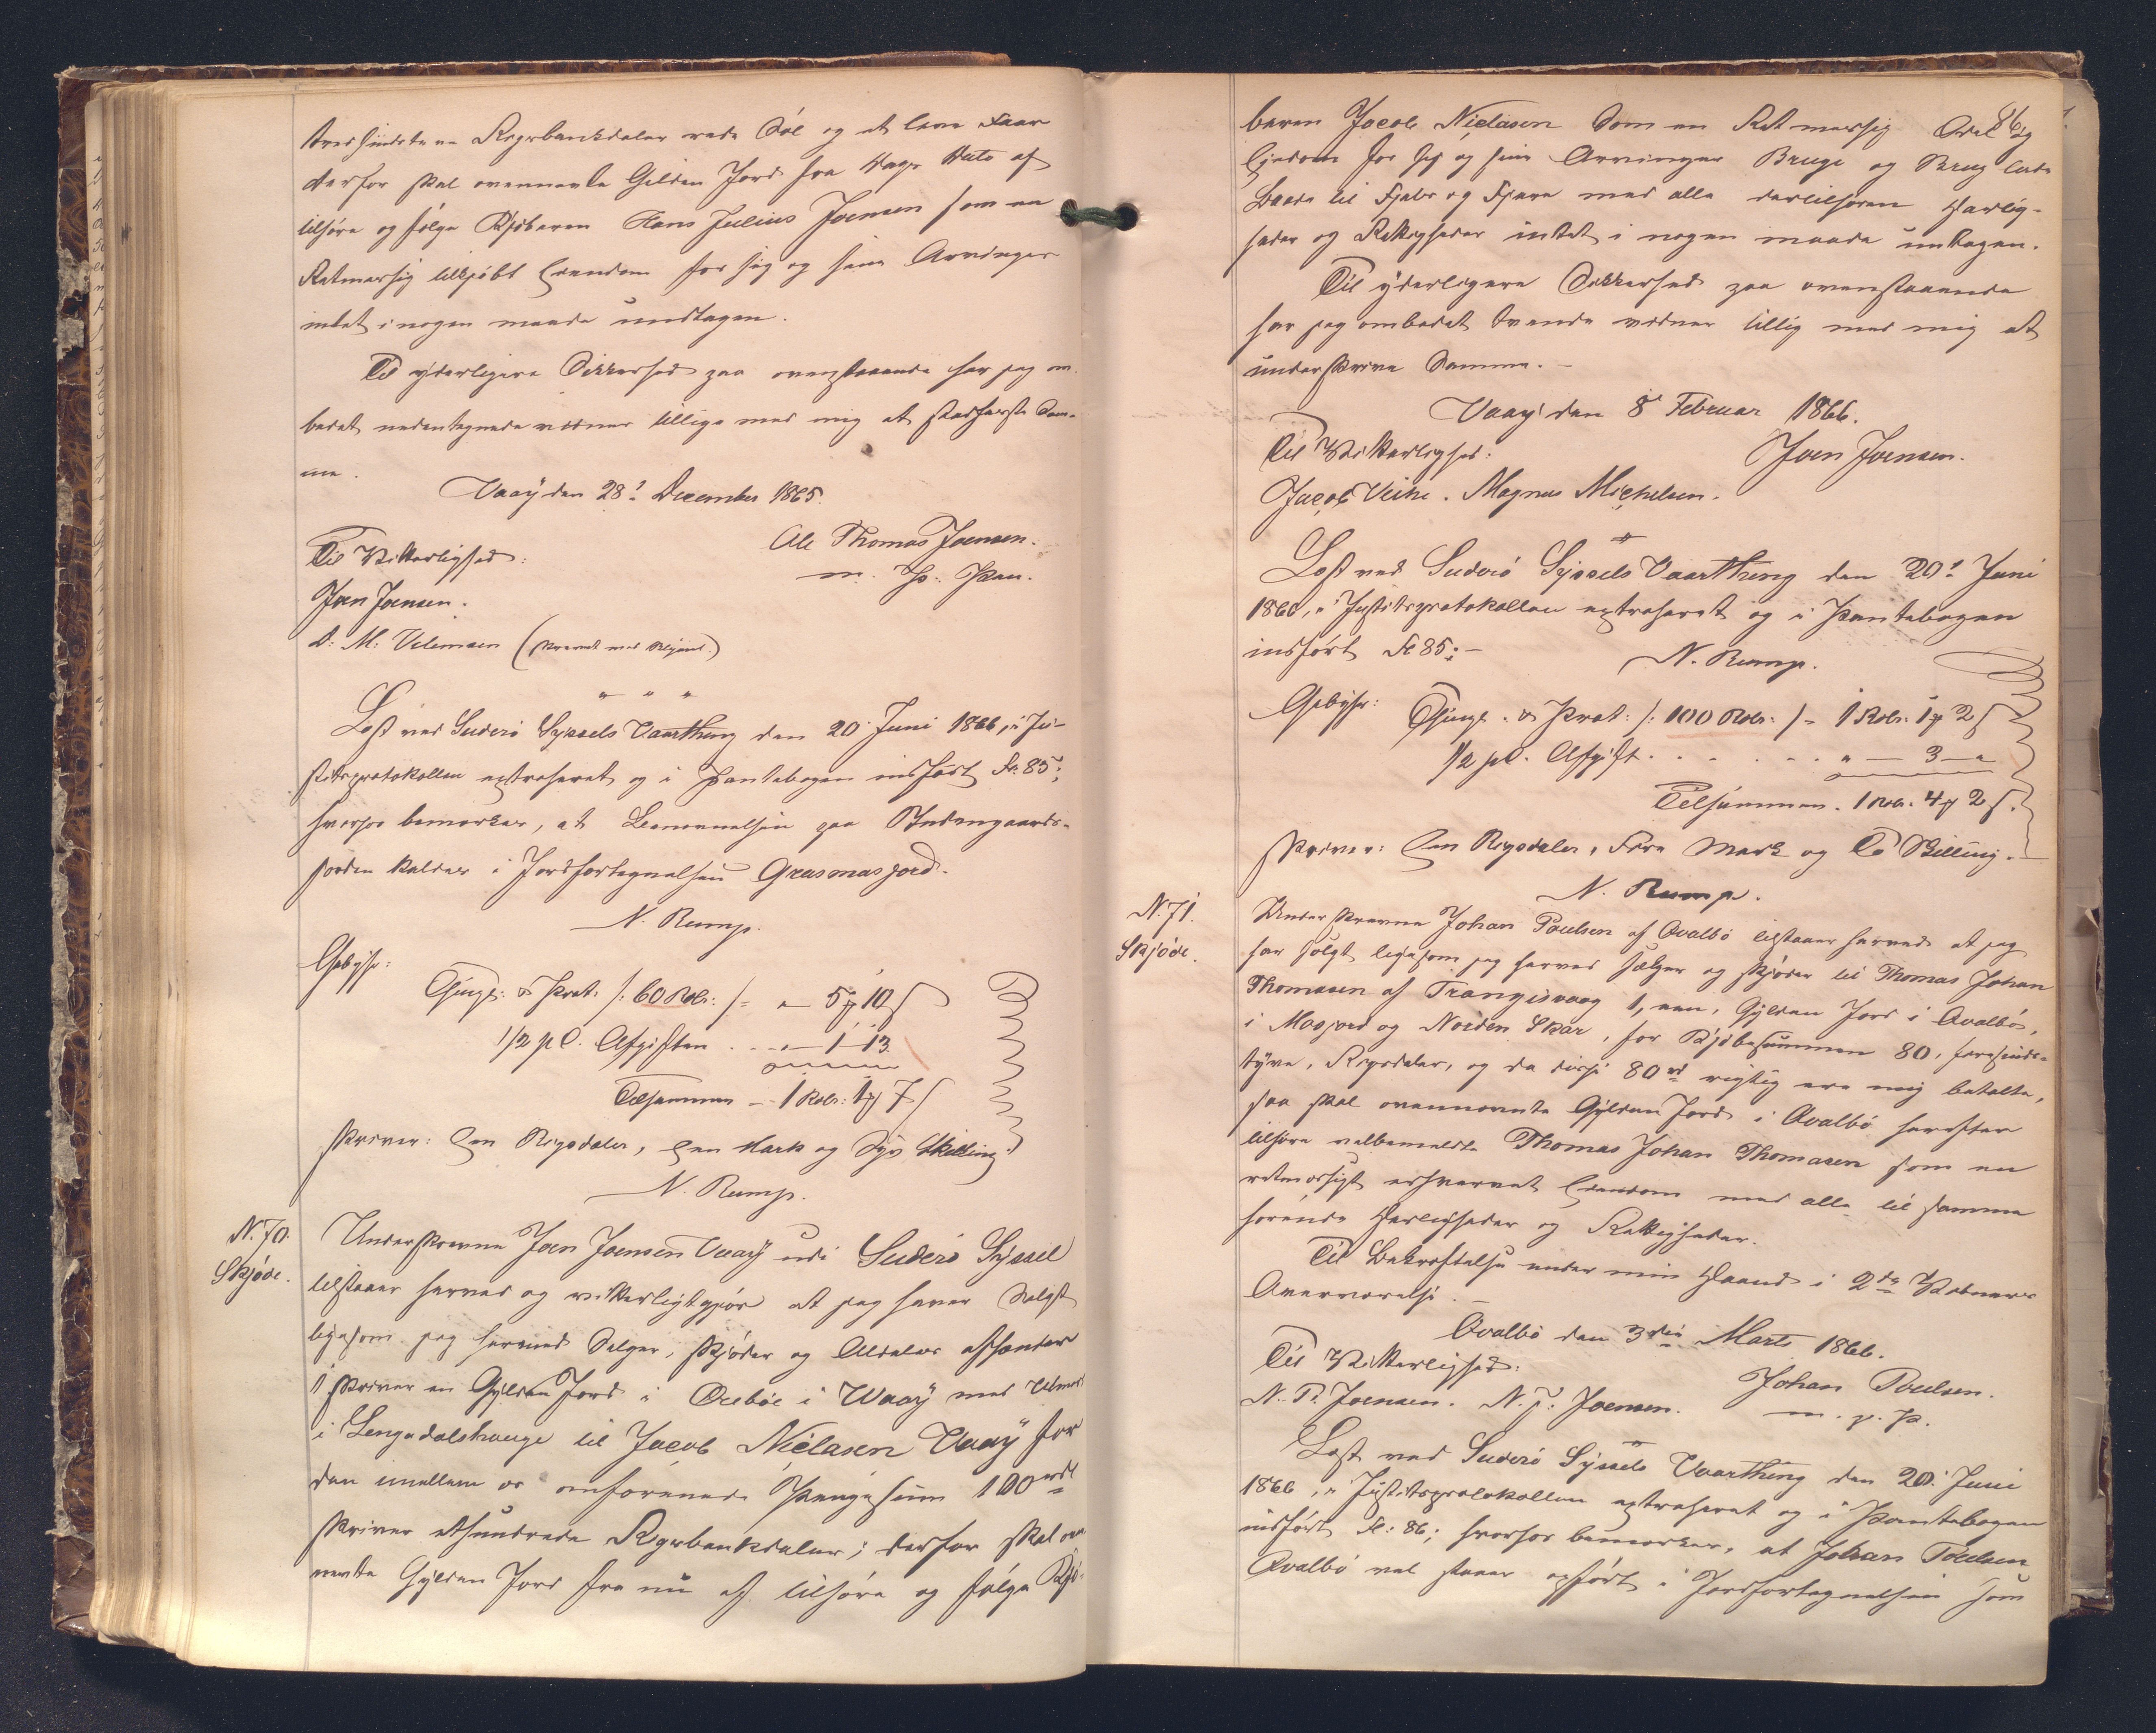 Rigsbankdaler rede Sølv og at lave
derfor skal ovennævnte Gylden Jord fra Dags Dato af
tilhøre og følge Kjøberen Hans Julius Joensen som en
Retmæssig tilkjøbt Eiendom for sig og sine Arvinger
intet i nogen maade undtagen.
Til yderligere Sikkerhed paa ovenstaaende har jeg om-
bedet nedentegnede vidner tillige med mig at stadfæste Sam-
me.
Vaaÿ den 28' December 1865.
Ole Thomas Joensen.
m. P. Pen.
Til Vitterlighed:
Joen Joensen.
D: M: Vilemsen (skrevet med Blyant.)
" " "
Læst ved Suderø Syssels Vaarthing den 20' Juni 1866, i Ju-
stitsprotokollen extraheret og i Pantebogen indført Fo. 85;
hvorfor bemærkes, at Benævnelsen paa
Jorden kaldes i Jordfortegnelsen Græsmasjord.
N. Rump.
Gebyhr:
Thingl: & Prot. /: 60 Rdlr: / = " 5 ꝳ 10 ẞ
1/2 pC. Afgiften . . " — 1 — 13
Tilsammen — 1 Rdlr: 1 ꝳ 7 ẞ
skriver: Een Rigsdaler, Een Mark og Syv Skilling.
N. Rump.
N. 70.
Skjøde.
Underskrevne Joen Joensen Vaaÿ udi Suderø Sÿssel
tilstaaer herved og vitterligtgjør at jeg haver Solgt
ligesom jeg herved Sælger, skjøder og Aldeles afhænder
1 skriver en Gylden Jord i Ørebøe i Waaÿ med
i Lengadalshauge til Jacob Nielasen Vaaÿ for
den imellem os omforenede Pengesum 100 rdl
skriver ethundrede Rigsbankdaler; derfor skal oven
nævnte Gylden Jord fra nu af tilhøre og følge Kjø-
86
beren Jacob Nielasen Som en Retmæssig Odel og
Ejendom for sig og sine Arvinger Bruge og Brug lade
Baade til Fjelds og Fjære med alle dertilhøren Herlig-
heder og Rettigheder intet i nogen maade undtagen.
Til yderligere Sikkerhed paa ovenstaaende
har jeg ombedet tvende vidner tillig med mig at
underskrive Samme. –
Vaaÿ den 8' Februar 1866.
Til Vitterlighed:
Joen Joensen.
Jacob Veihe. Magnus Michelsen.
"
Læst ved Suderø Sÿssels Vaarthing den 20' Juni
1866, i Justitsprotokollen extraheret og i Pantebogen
indført Fo 85; –
N. Rump.
Gebyhr: Thingl. & Prot: /: 100 Rdlr: / = 1 Rdlr. 1 ꝳ 2 ẞ
1/2 pC. Afgift . . . . . . " — 3 — "
Tilsammen. 1 Rdlr. 4 ꝳ 2 ẞ.
skriver: Een Rigsdaler, Fire Mark og To Skilling. –
N. Rump.
N. 71.
Skjøde.
Underskrevne Johan Poulsen af Qvalbø tilstaaer herved at jeg
har solgt ligesom jeg herved sælger og skjøder til Thomas Johan
Thomasen af Trangisvaag 1, een, Gylden Jord i Qvalbø,
i Masjord og Norden Skar, for Kjøbesummen 80, firesinds-
tÿve, Rigsdaler, og da disse 80 rd rigtig ere mig betalte,
saa skal ovennævnte Gylden Jord i Qvalbø herefter
tilhøre velbemeldte Thomas Johan Thomasen som en
retmæssigt erhvervet Eiendom med alle til samme
hørende Herligheder og Rettigheder.
Til Bekræftelse under min Haand i 2de Vidners
Overværelse. –
Qvalbø den 3die Marts 1866.
Til Vitterlighed:
Johan Poulsen.
N. P. Joensen. N. J. Joensen.
m. p. P.
"
Læst ved Suderø Sÿssels Vaarthing den 20' Juni
1866, i Justitsprotokollen extraheret og i Pantebogen
indført Fo: 86; hvorfor bemærkes, at Johan Poulsen
Qvalbø vel staaer opført i Jordfortegnelsen som